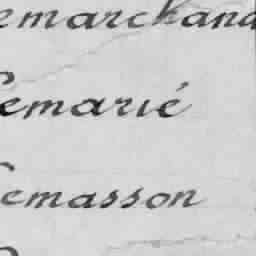 Lemarchand
Lemarié
Lemasson